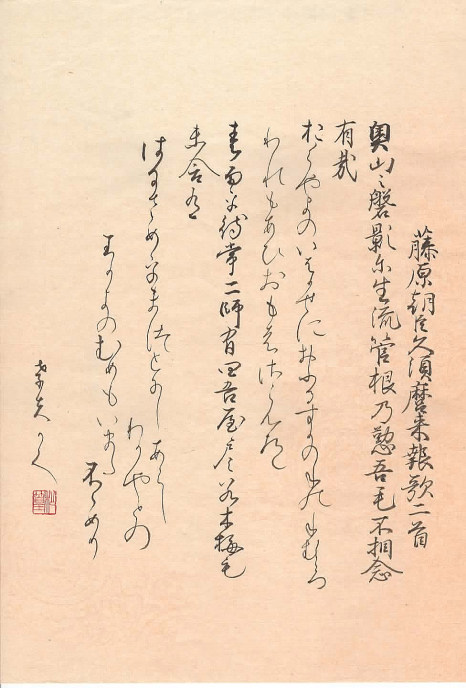 藤原朝臣久須麿来報歌二首
奥山之磐影尓生流菅根乃懃吾毛不相念
有哉
おくやまのいはかけにおふるすかのねのねむころ
われもあひおもはされや
春雨乎待常二師有四吾屋戸之若木梅毛
未含有
はるさめをまつとにしあらし
わかやとの
わかきのむめもいまた
ふゝめり